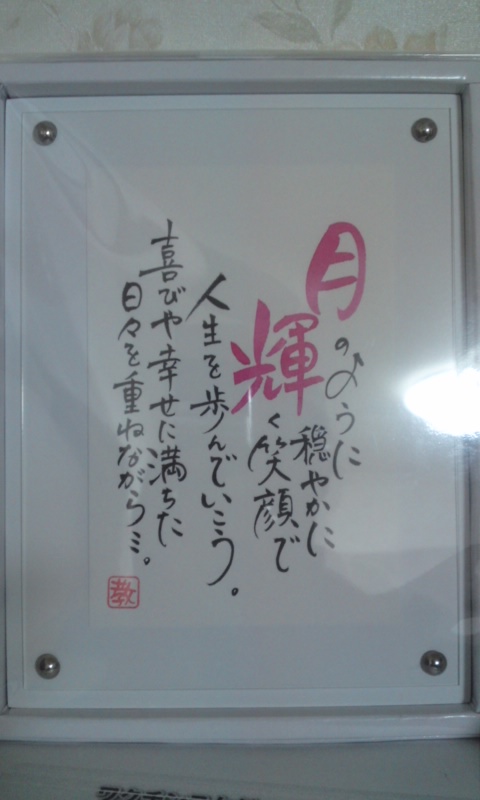 月のように
穏やかに
輝く笑顔で
人生を歩んでいこう。
喜びや幸せに満ちた
日々を重ねながら…。
教